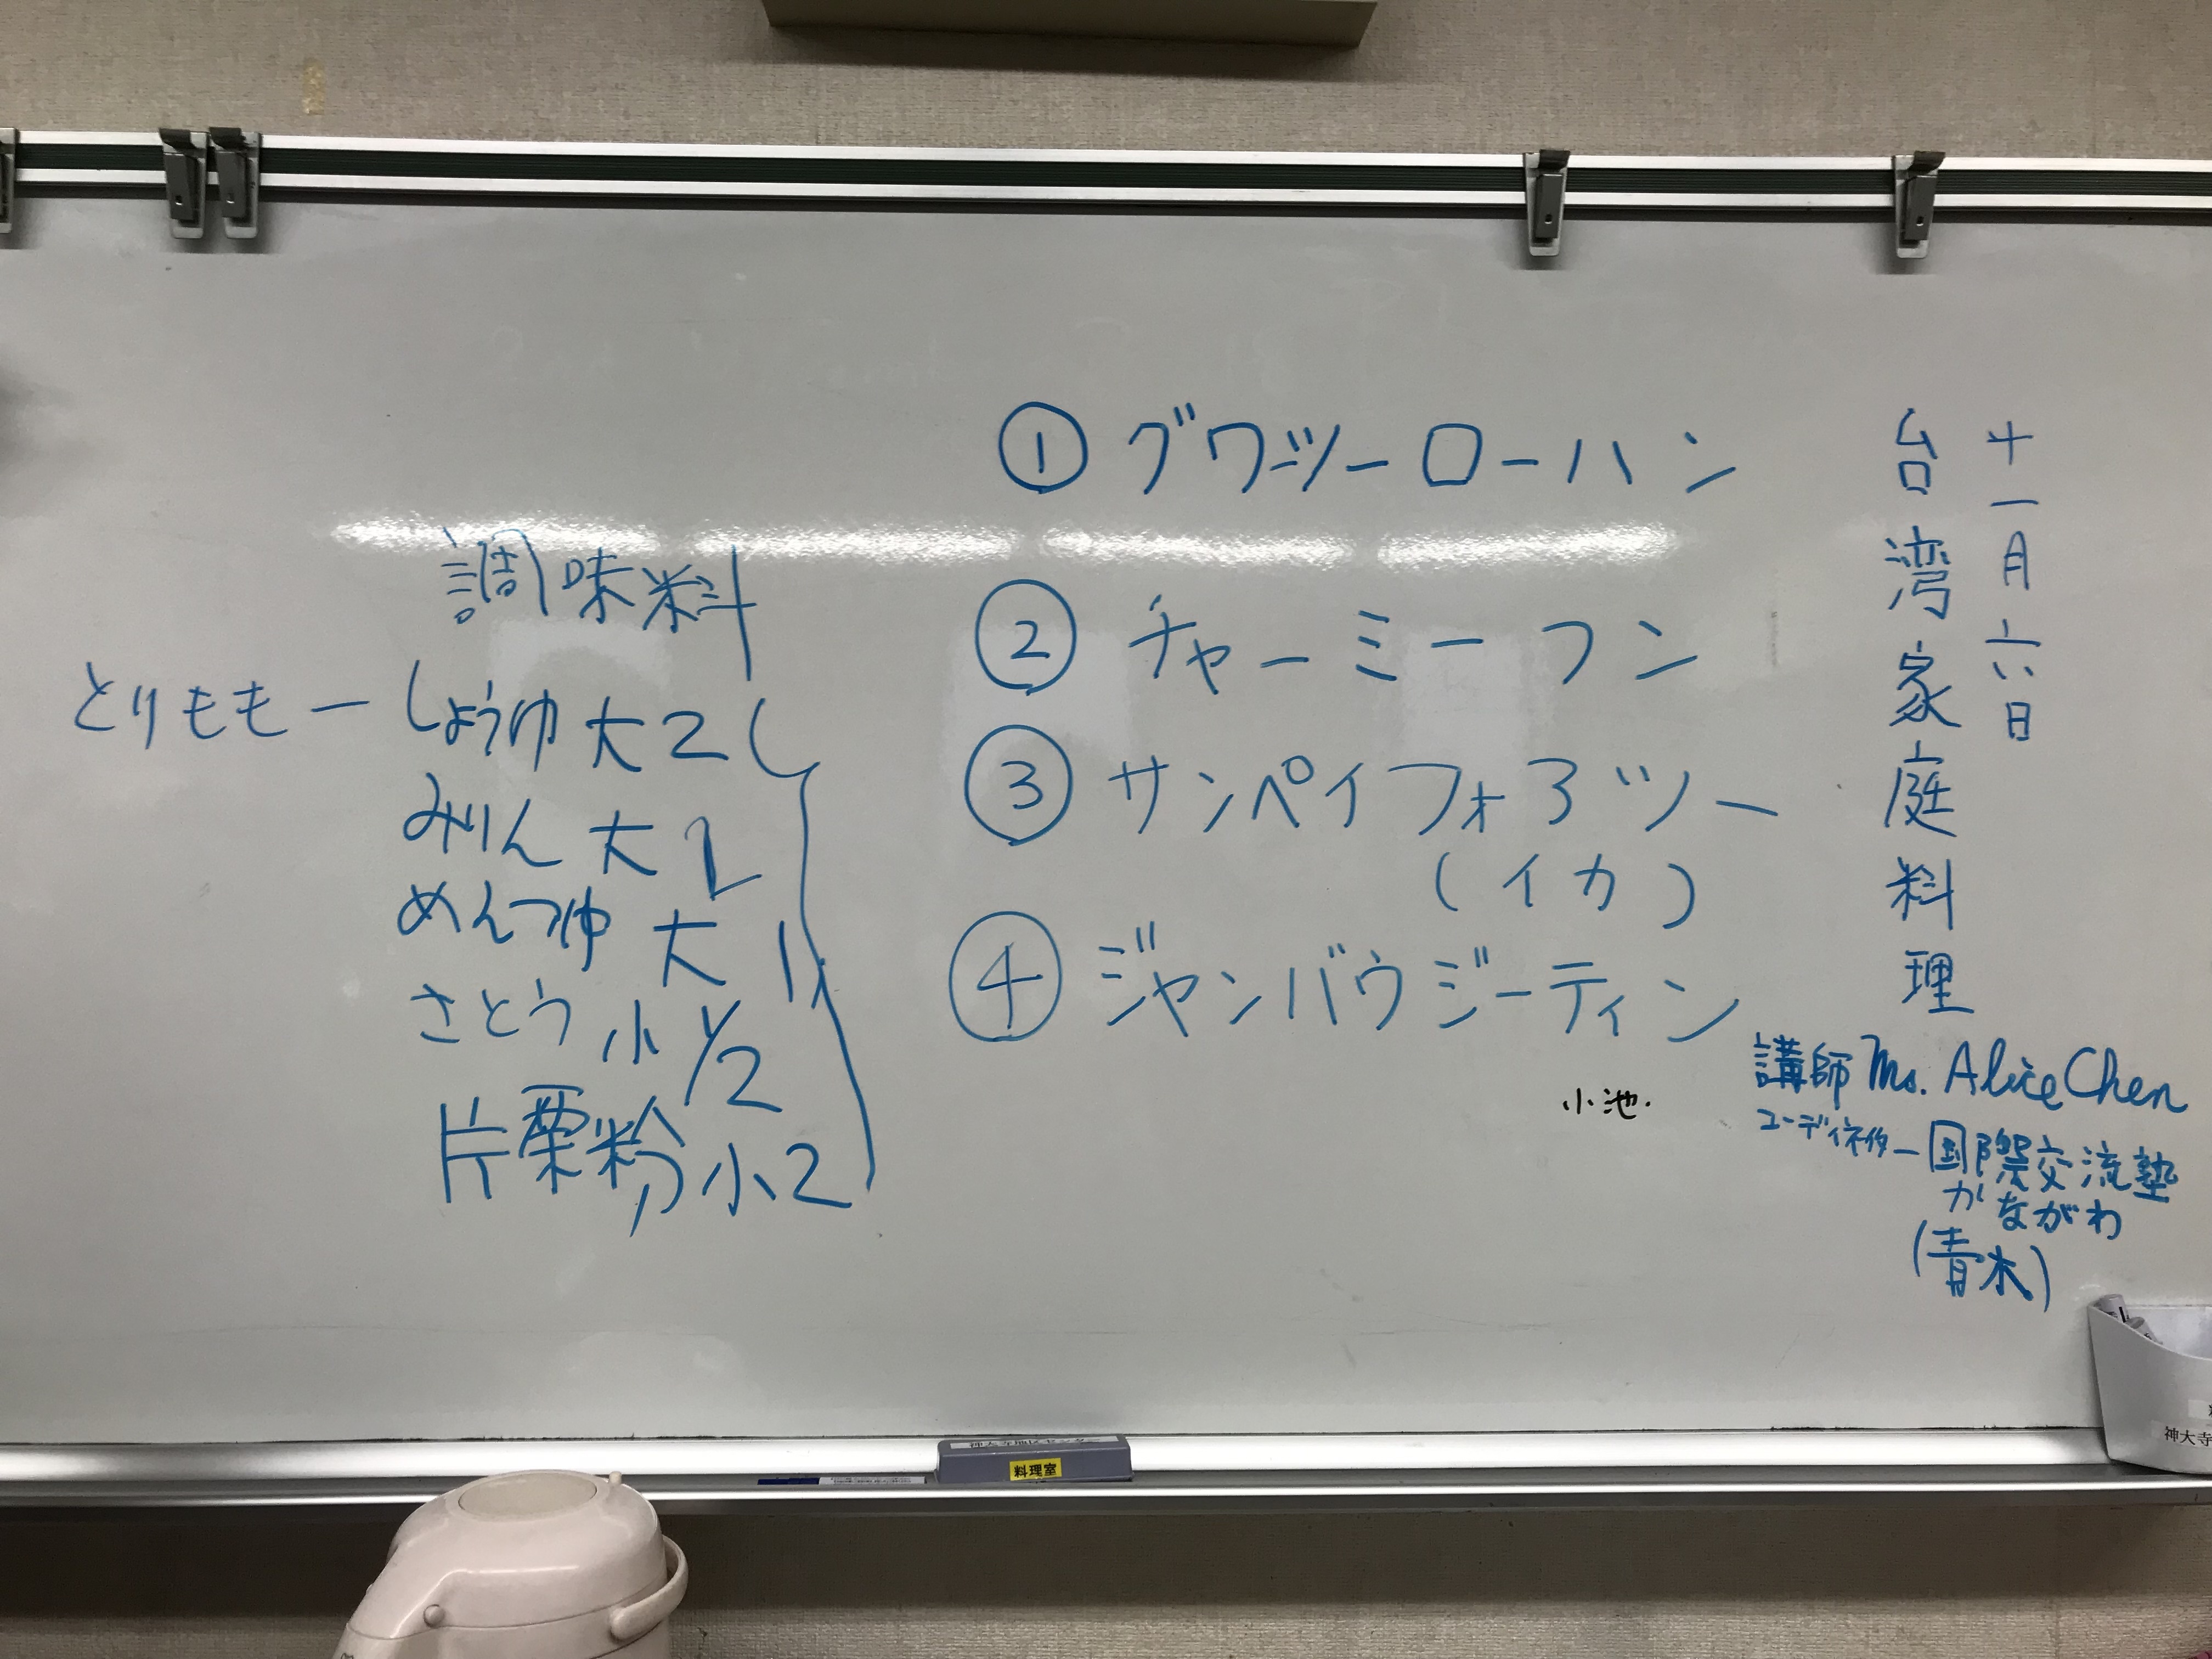 十一月六日
台湾家庭料理
講師 Ms. Alice Chen
コーディネーター 国際交流塾
かながわ
(青木)
① グワツーローハン
② チャーミーフン
③ サンペイフォヨツー
(イカ)
④ ジャンバウジーティン
小池.
調味料
とりもも ー しょうゆ 大2
みりん 大1
めんつゆ 大1
さとう 小1/2
片栗粉 小2
料理室
神大寺